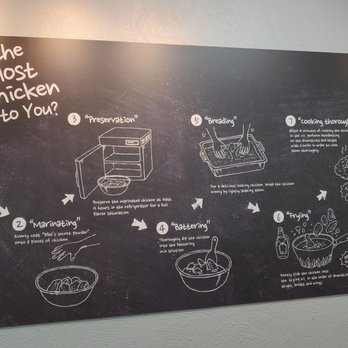 the
Most
Chicken
to You?
3 "Preservation"
Preserve the marinated chicken at least
in the refrigerator for a full
flavor saturation.
5 "Breading"
For a delicious looking chicken, bread the chicken
evenly by lightly pushing them.
7 "Cooking thorough
After 8 minutes of cooking the chi
in the oil,
on the drumsticks and thighs
with a knife in order to cook
them thoroughly.
2 "Marinating"
Evenly coat "BBQ's sauce powder"
onto 8 pieces of chicken.
4 "Battering"
Thoroughly dip the chicken
into the battering
mix solution.
6 "Frying"
slide the chicken into
the frying oil, in the order of
thighs, breast and wings.